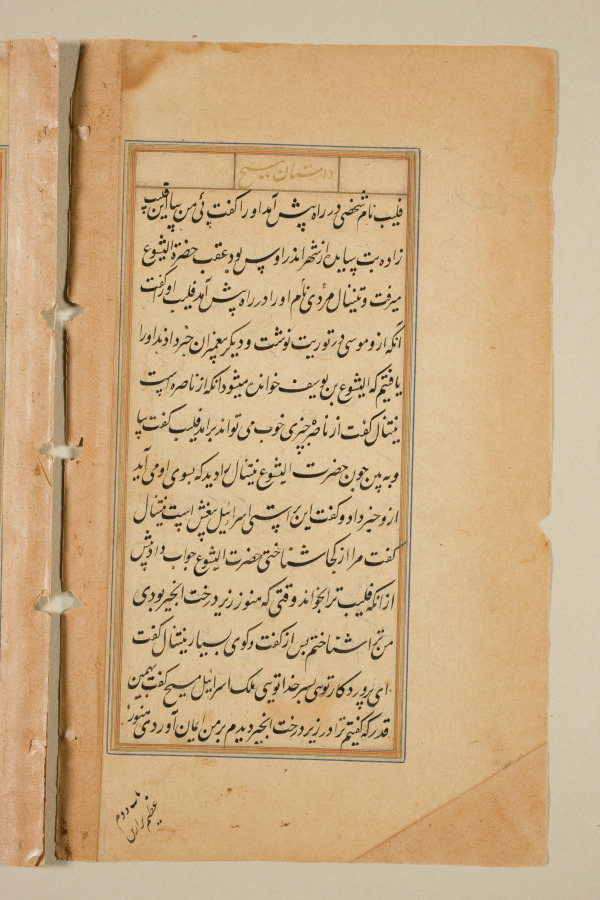 داستان مسیح
فلیب نام شخصی در راه پیش آمد او را گفت پئی من بیا این فلیب
زاده بت بیدا از شهر اندراوس بود عقب حضرة الیشوع
میرفت و نیتنال مردی نام او را در راه پیش آمد فلیب او را گفت
آنکه از و موسی در توریت نوشت و دیگر پیغمبران خبر دادند او را
یافتیم که الیشوع بن یوسف خوانده میشود آنکه از ناصره است
نیتنال گفت از ناصره چیزی خوب می تواند برامد فلیب گفت بیا
و ببین چون حضرت الیشوع نیتنال را دید که بسوی او می آید
از و خبر داد و گفت این براستی اسرائیل بیغش است نیتنال
گفت مرا از کجا شناختی حضرت الیشوع جواب داد پیش
از آنکه فلیب ترا بخواند وقتی که هنوز زیر درخت انجیر بودی
من ترا شناختم پس از گفت و کوی بسیار نیتنال گفت
ای پروردکار توی پسر خدا توی ملک اسرائیل مسیح گفت بهمین
قدر که گفتیم ترا در زیر درخت انجیر دیدم بر من ایمان آوردی هنوز
باب دوم
عظیم تر ازین